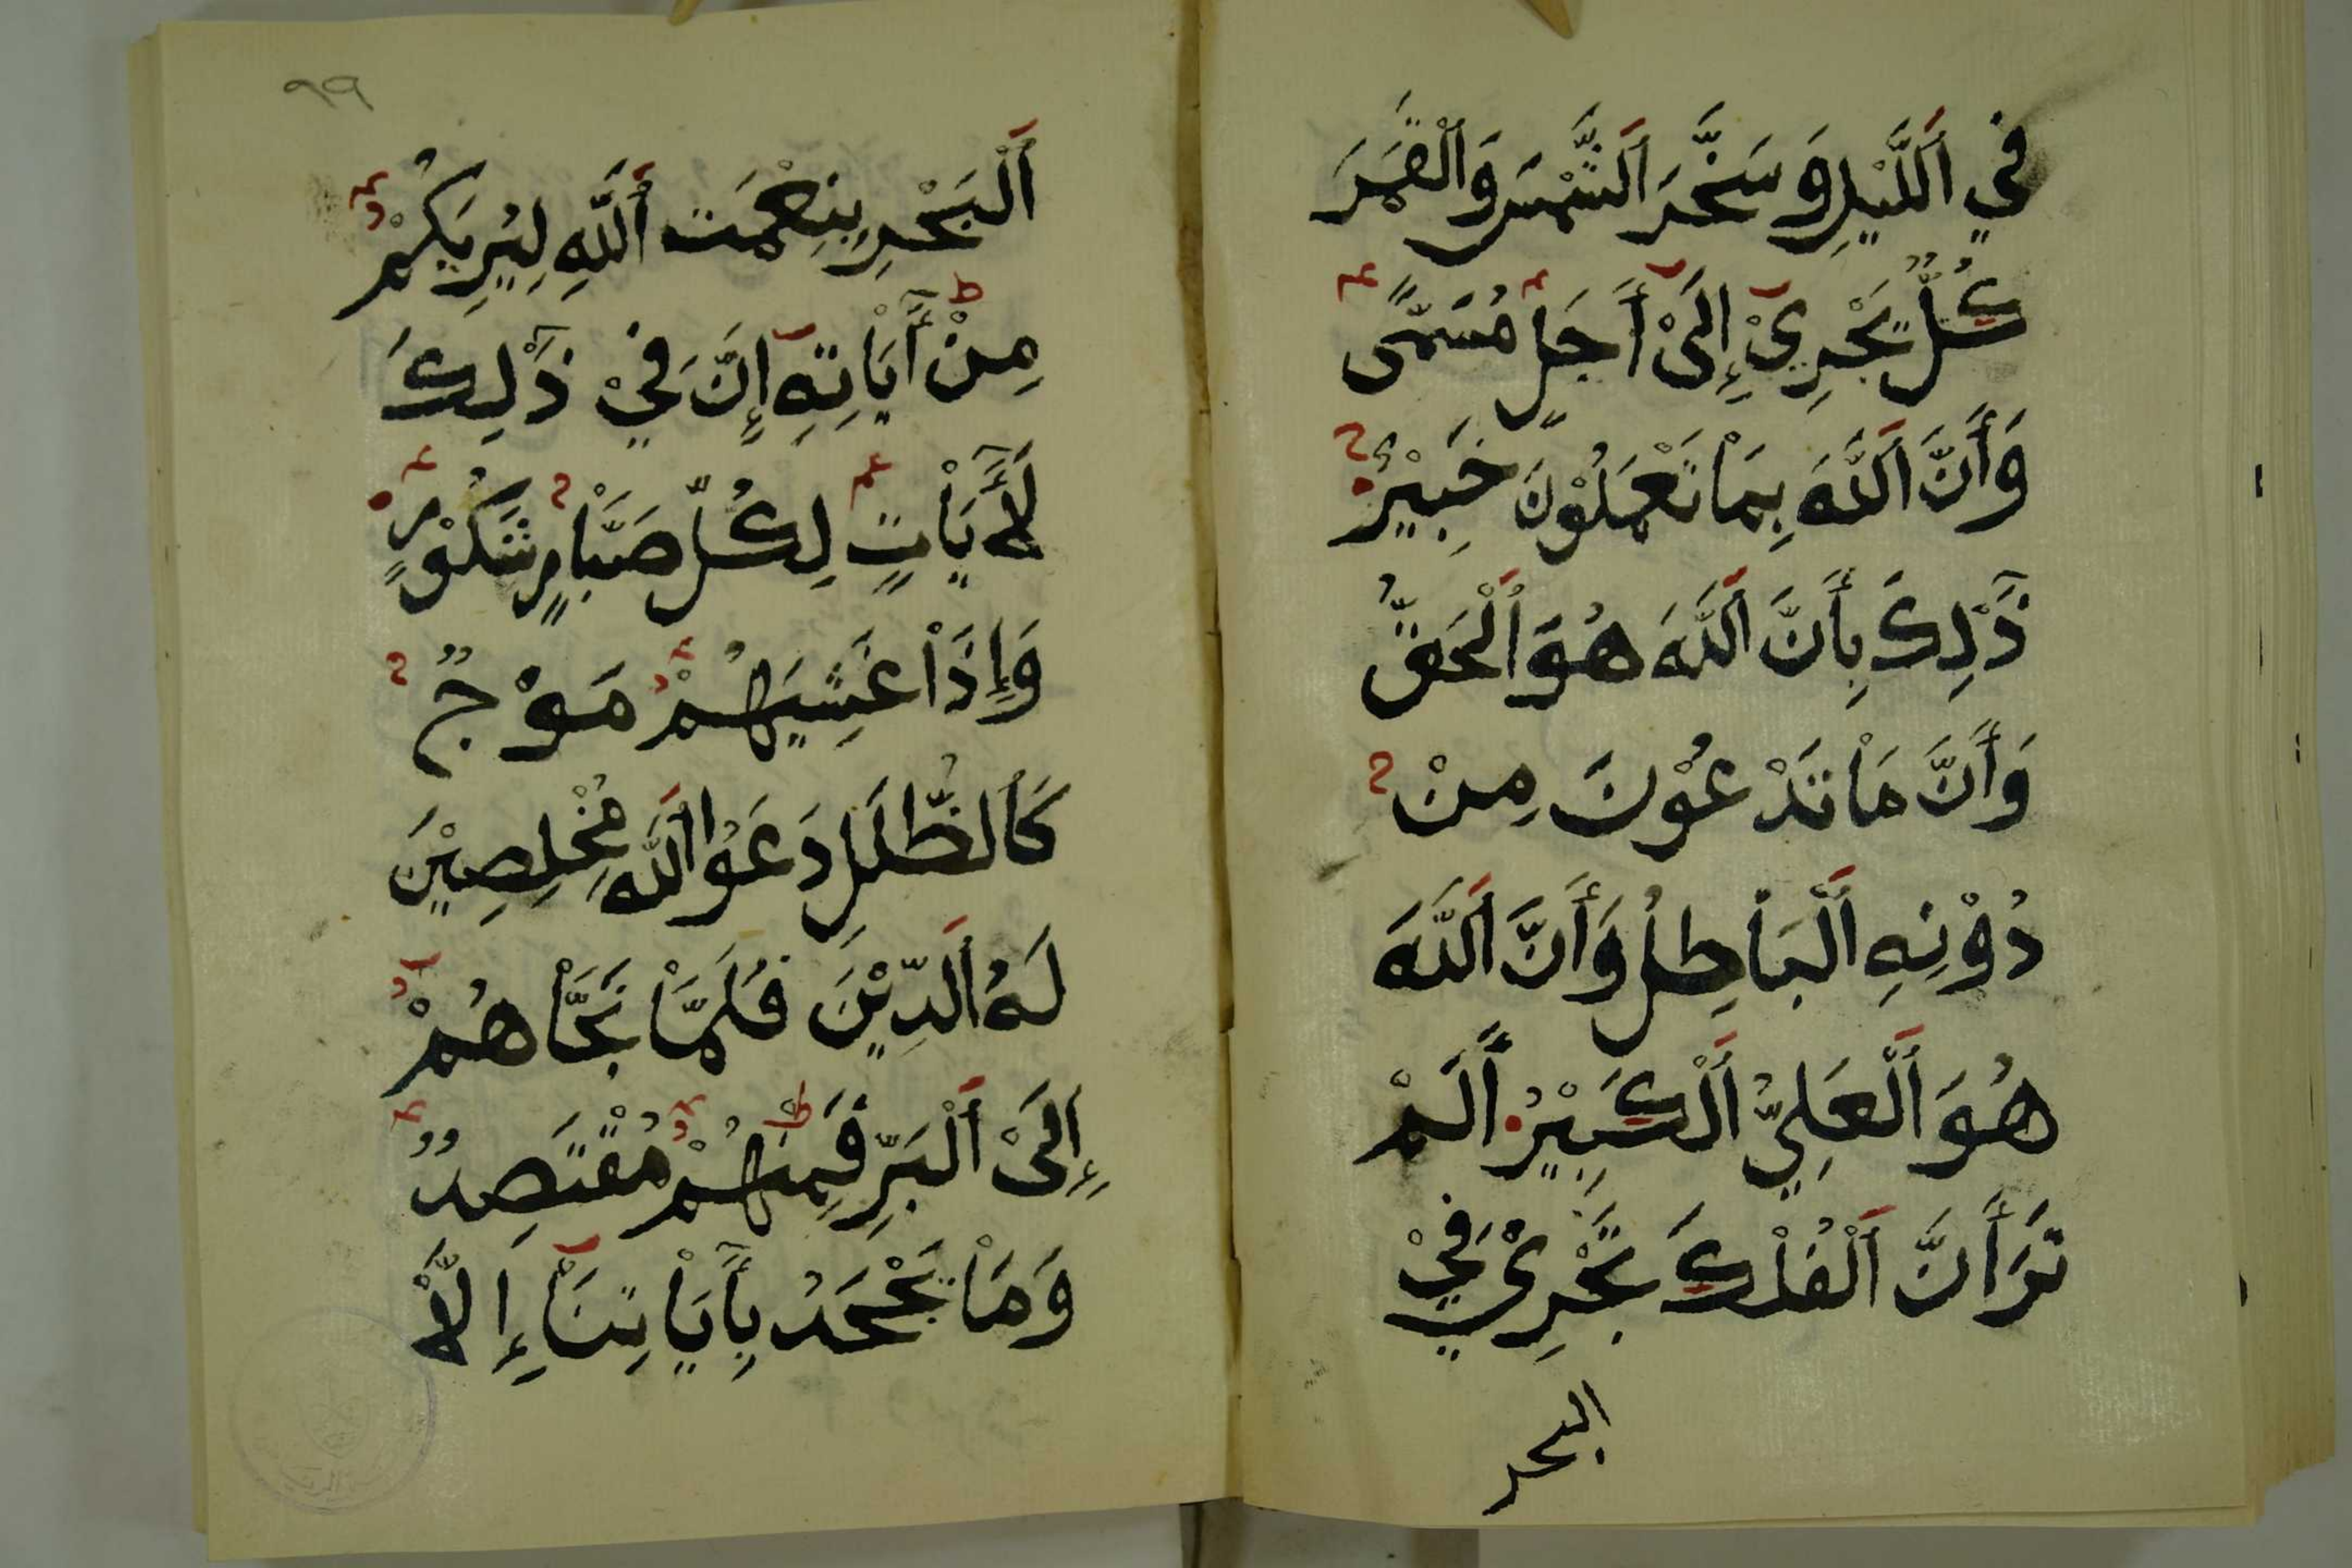 فِي اَللَّيْلِ وَسَخَّرَ اَلشَّمْسَ وَاَلْقَمَرَ
كُلٌّ يَجْرِيْ إِلَىْ أَجَلٍ مُسَمًّى
وَأَنَّ اَللَّهَ بِمَاْ تَعْمَلُوْنَ خَبِيْرٌ
ذَٰلِكَ بِأَنَّ اَللَّهَ هُوَ اَلْحَقُّ
وَأَنَّ مَاْ تَدْعُوْنَ مِنْ
دُوْنِهِ اَلْبَاْطِلُ وَأَنَّ اَللَّهَ
هُوَ اَلْعَلِيُّ اَلْكَبِيْرُ أَلَمْ
تَرَ أَنَّ اَلْفُلْكَ تَجْرِيْ فِيْ
البحر
٩٩
اَلْبَحْرِ بِنِعْمَتِ اَللَّهِ لِيُرِيَكُمْ
مِنْ أَٓيَاْتِهِ إِنَّ فِيْ ذَٰلِكَ
لَأَٓيَاْتٍ لِكُلِّ صَبَّاْرٍ شَكُوْرٍ
وَإِذَاْ غَشِيَهُمْ مَوْجٌ
كَاَلظُّلَلِ دَعَوُا اَللَّهَ مُخْلِصِيْنَ
لَهُ اَلدِّيْنَ فَلَمَّاْ نَجَّاْهُمْ
إِلَىْ اَلْبَرِّ فَمِنْهُمْ مُقْتَصِدٌ
وَمَاْ يَجْحَدُ بِأَٓيَاْتِنَاْ إِلَّاْ